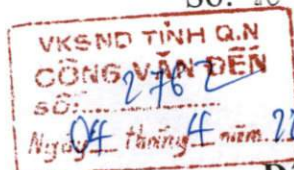 Số:
VKSND TỈNH Q.N
CÔNG VĂN ĐẾN
SỐ:........2762
Ngày 04 tháng 4 năm 22